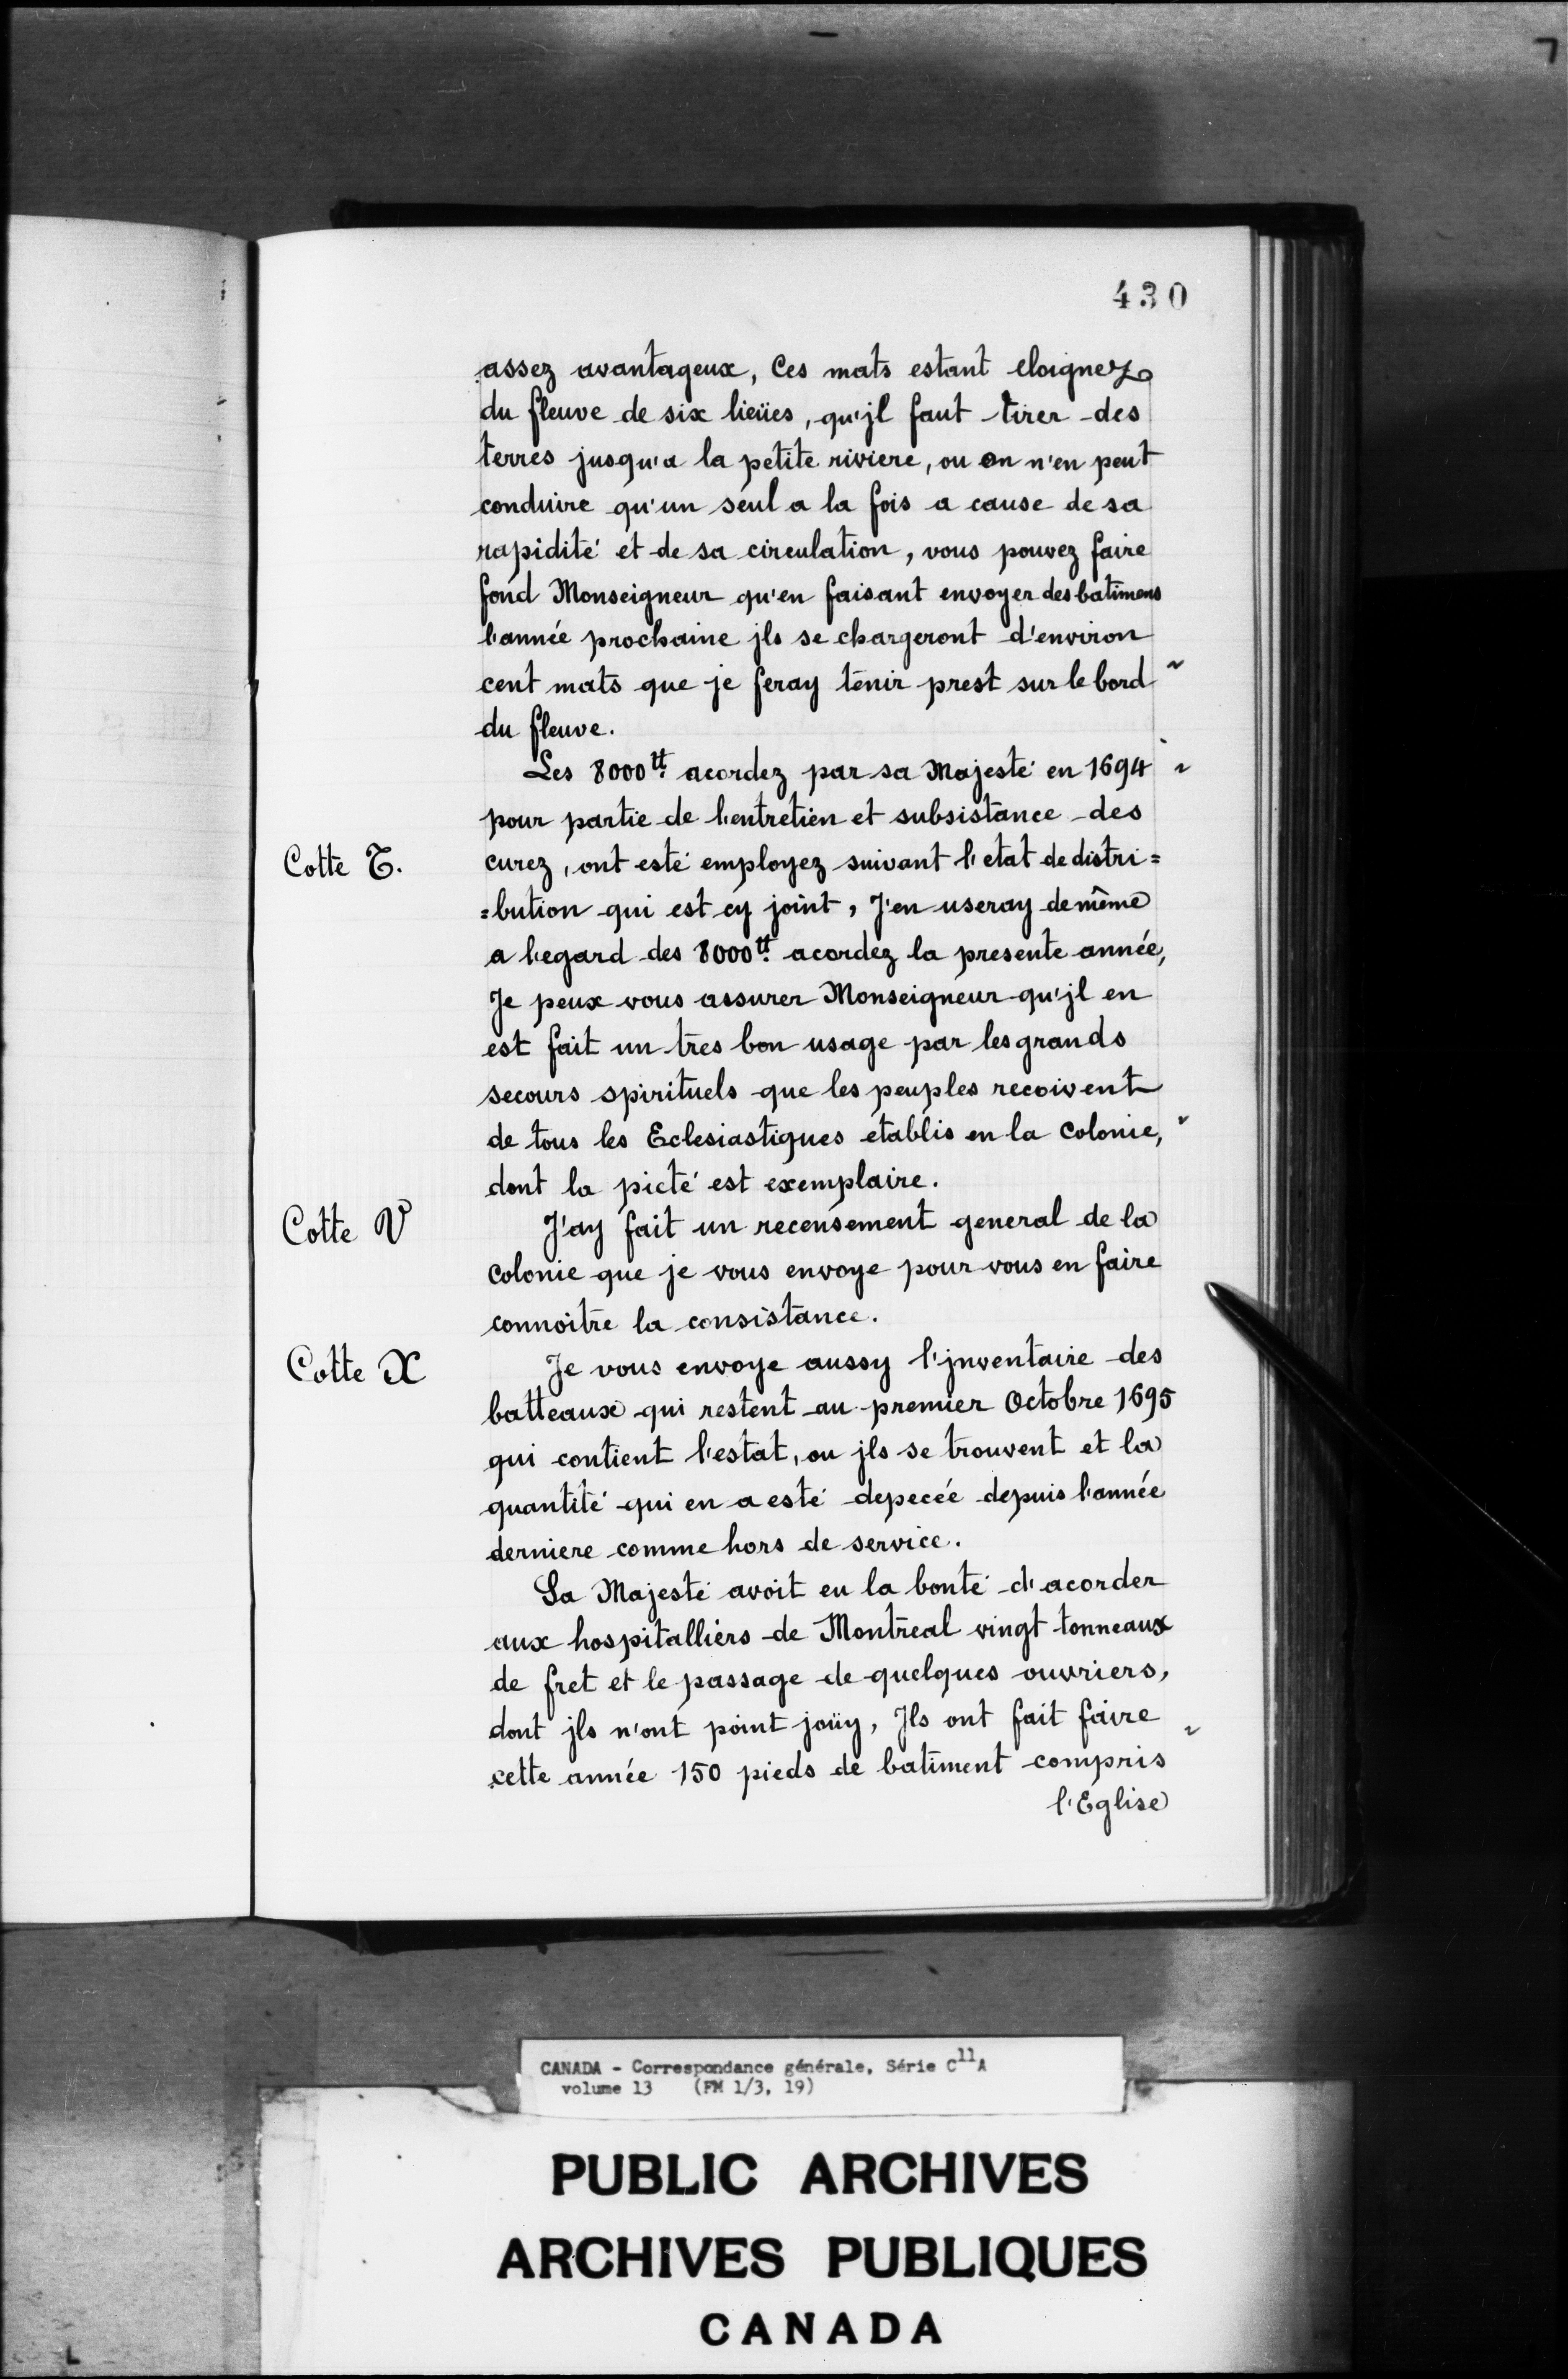 430
assez avantageux, Ces mats estant eloignez
du fleuve de six lieües, qu'jl faut tirer des
terres jusqu'a la petite riviere, ou on n'en peut
conduire qu'un seul a la fois a cause de sa
rapidité et de sa circulation, vous pouvez faire
fond Monseigneur qu'en faisant envoyer des batimens
l'année prochaine jls se chargeront d'environ
cent mats que je feray tenir prest sur le bord ~
du fleuve.
Les 8000tt. acordez par sa Majesté en 1694 ~
pour partie de l'entretien et subsistance des
Cotte T. curez, ont esté employez suivant l'etat de distri=
=bution qui est cy joint, J'en useray de même
a l'egard des 8000tt. acordez la presente année,
Je peux vous assurer Monseigneur qu'jl en
est fait un tres bon usage par les grands
secours spirituels que les peuples recoivent
de tous les Eclesiastiques établis en la Colonie, ~
dont la pieté est exemplaire.
Cotte V J'ay fait un recensement general de la
Colonie que je vous envoye pour vous en faire
connoitre la consistance.
Cotte X Je vous envoye aussy l'jnventaire des
batteaux qui restent au premier Octobre 1695
qui contient l'estat, ou jls se trouvent et la
quantité qui en a esté depecée depuis l'année
derniere comme hors de service.
Sa Majesté avoit eu la bonté d'acorder
aux hospitalliers de Montreal vingt tonneaux
de fret et le passage de quelques ouvriers,
dont jls n'ont point joüy, Jls ont fait faire ~
cette année 150 pieds de batiment compris
l'Eglise
CANADA - Correspondance générale, Série C11A
volume 13 (FM 1/3, 19)
PUBLIC ARCHIVES
ARCHIVES PUBLIQUES
CANADA